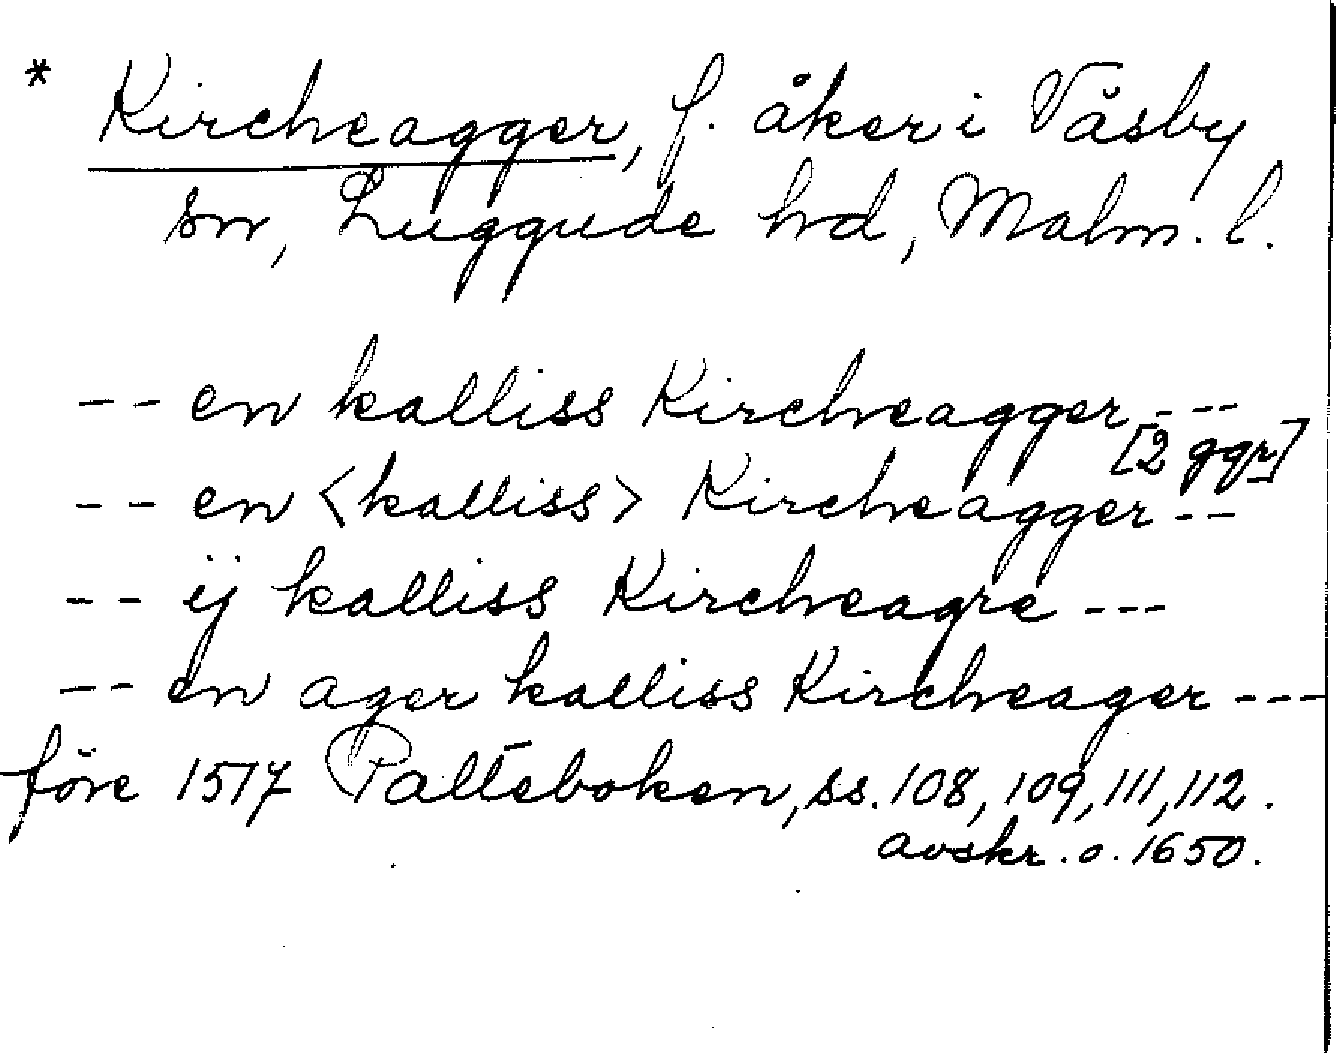 * Kircheagger, f. åker i Våsby
sn, Luggude hd, Malm. l.
-- en kalliss Kircheagger ---
[2 ggr]
-- en <kalliss> Kircheagger --
-- ij kalliss Kircheagre ---
-- en ager kalliss Kircheager ---
före 1517 Palteboken, ss. 108, 109, 111, 112.
avskr. o. 1650.